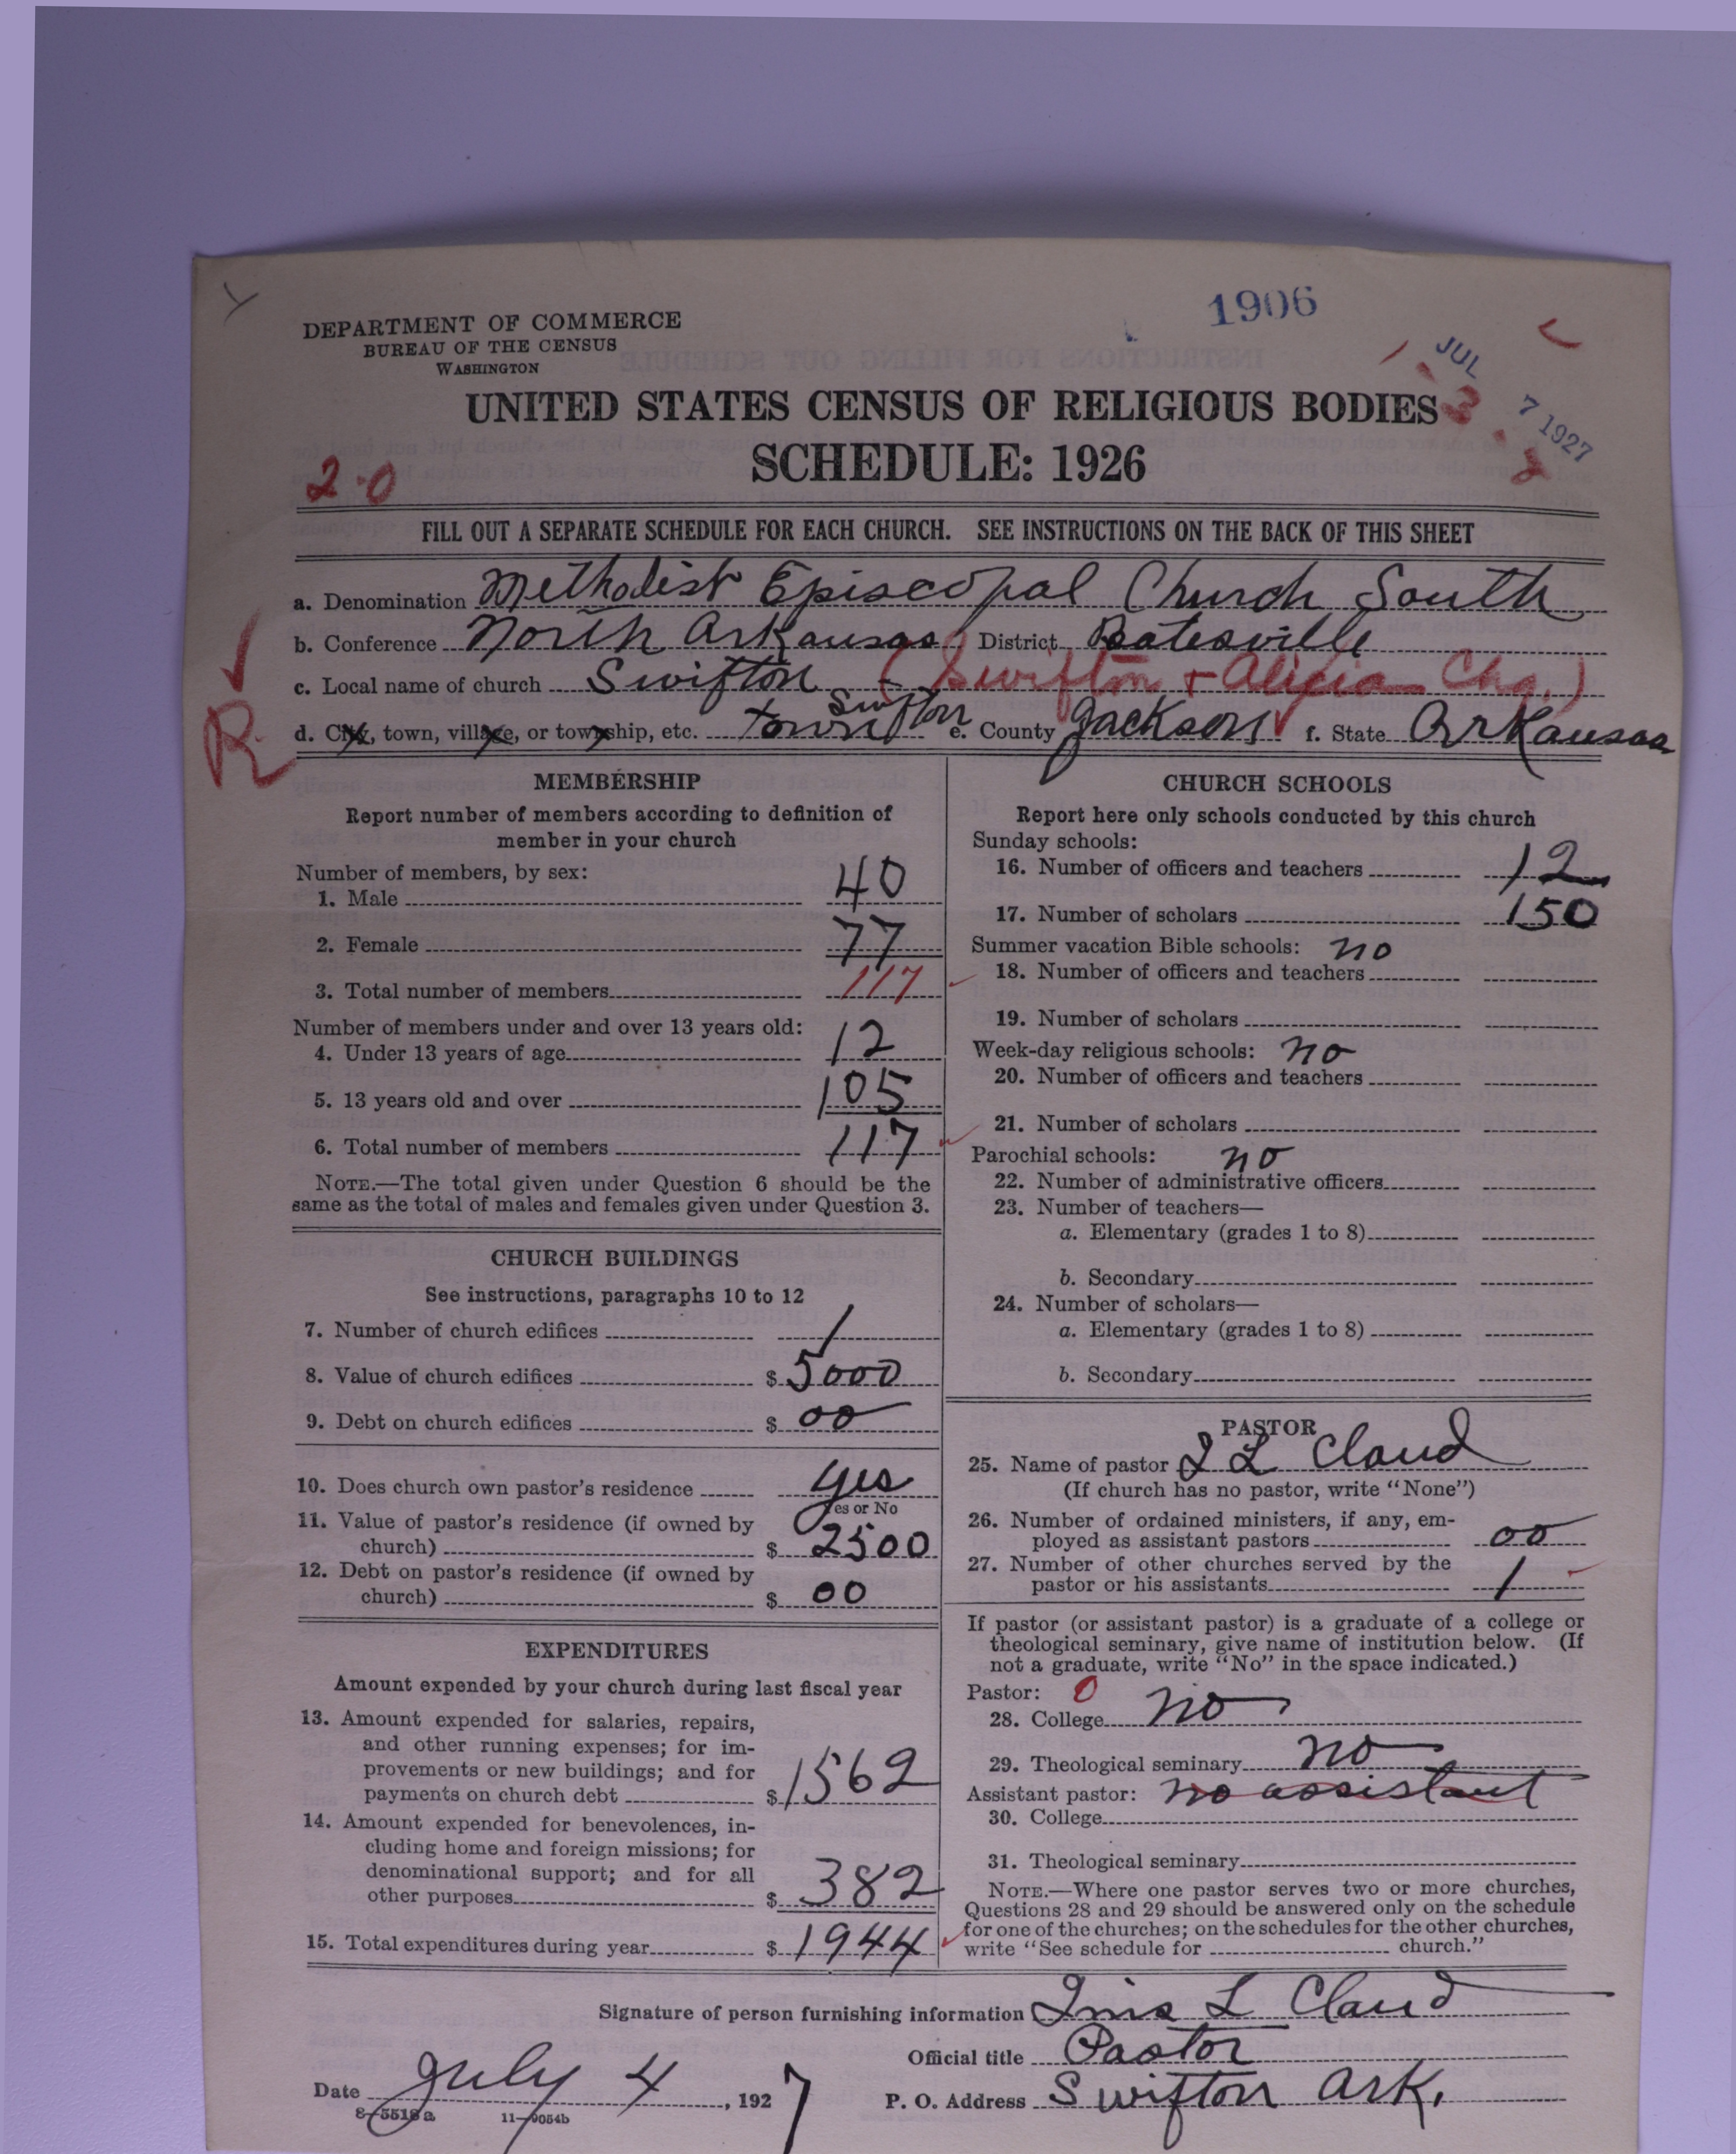 1906
DEPARTMENT OF COMMERCE
BUREAU OF THE CENSUS
WASHINGTON
JUL 7 1927
UNITED STATES CENSUS OF RELIGIOUS BODIES
SCHEDULE: 1926
2·0
FILL OUT A SEPARATE SCHEDULE FOR EACH CHURCH. SEE INSTRUCTIONS ON THE BACK OF THIS SHEET
a. Denomination Methodist Episcopal Church South
b. Conference North Arkansas District Batesville
c. Local name of church Swifton (Swifton + Alicia Chg.)
d. City, town, village, or township, etc. town Swifton e. County Jackson f. State Arkansas
R
MEMBERSHIP
Report number of members according to definition of
member in your church
Number of members, by sex:
1. Male 40
2. Female 77
3. Total number of members 117
Number of members under and over 13 years old:
4. Under 13 years of age 12
5. 13 years old and over 105
6. Total number of members 117
NOTE.—The total given under Question 6 should be the
same as the total of males and females given under Question 3.
CHURCH BUILDINGS
See instructions, paragraphs 10 to 12
7. Number of church edifices 1
8. Value of church edifices $ 5000
9. Debt on church edifices $ 00
10. Does church own pastor's residence yes
Yes or No
11. Value of pastor's residence (if owned by
church) $ 2500
12. Debt on pastor's residence (if owned by
church) $ 00
EXPENDITURES
Amount expended by your church during last fiscal year
13. Amount expended for salaries, repairs,
and other running expenses; for im-
provements or new buildings; and for
payments on church debt $ 1562
14. Amount expended for benevolences, in-
cluding home and foreign missions; for
denominational support; and for all
other purposes $ 382
15. Total expenditures during year $ 1944
CHURCH SCHOOLS
Report here only schools conducted by this church
Sunday schools:
16. Number of officers and teachers 12
17. Number of scholars 150
Summer vacation Bible schools: no
18. Number of officers and teachers
19. Number of scholars
Week-day religious schools: no
20. Number of officers and teachers
21. Number of scholars
Parochial schools: no
22. Number of administrative officers
23. Number of teachers—
a. Elementary (grades 1 to 8)
b. Secondary
24. Number of scholars—
a. Elementary (grades 1 to 8)
b. Secondary
PASTOR
25. Name of pastor I L Claud
(If church has no pastor, write "None")
26. Number of ordained ministers, if any, em-
ployed as assistant pastors 00
27. Number of other churches served by the
pastor or his assistants 1
If pastor (or assistant pastor) is a graduate of a college or
theological seminary, give name of institution below. (If
not a graduate, write "No" in the space indicated.)
Pastor: 0
28. College no
29. Theological seminary no
Assistant pastor: no assistant
30. College
31. Theological seminary
NOTE.—Where one pastor serves two or more churches,
Questions 28 and 29 should be answered only on the schedule
for one of the churches; on the schedules for the other churches,
write "See schedule for church."
Signature of person furnishing information L Claud
Official title Pastor
Date July 4, 1927 P. O. Address Swifton Ark.
8—5518a 11—9054b